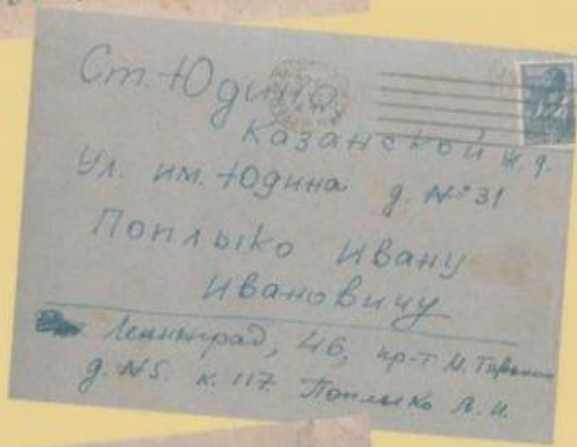 Ст. Юдино
Казанской ж. д.
Ул. им. Юдина д. № 31
Поплыко Ивану
Ивановичу
Ленинград, 46, пр-т М. Горького
д. № 5 к. 117. Поплыко